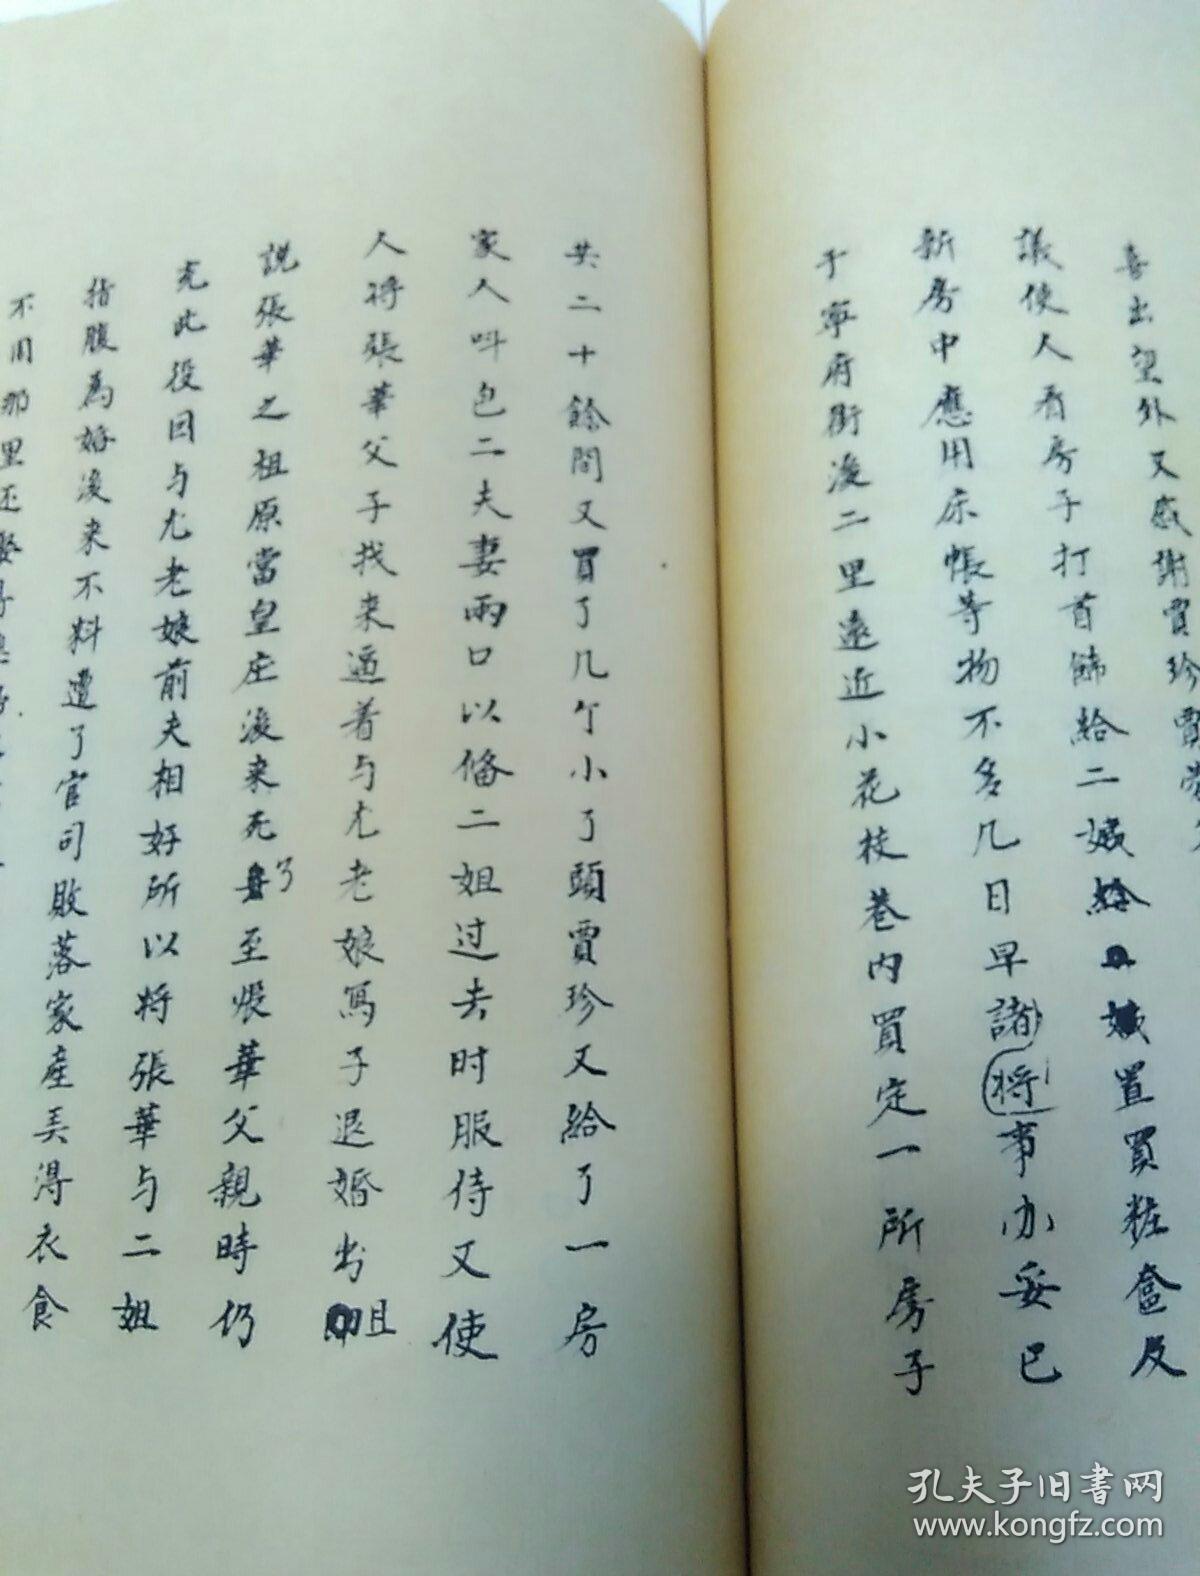 喜出望外又感謝賈珍賈蓉
議使人看房子打首飾給二姨給姨置買粧奩及
新房中應用床帳等物不多几日早諸將事办妥已
于寧府街後二里遠近小花枝巷内買定一所房子
共二十餘間又買了几个小了頭賈珍又給了一房
家人叫包二夫妻兩口以俻二姐过去时服侍又使
人将張華父子找来逼着与尤老娘寫子退婚出且
說張華之祖原當皇庄後来死了至張華父親時仍
充此役因与尤老娘前夫相好所以将張華与二姐
指腹為婚後来不料遭了官司敗落家産美淂衣食
不周那里还娶
孔夫子旧书网
www.kongfz.com